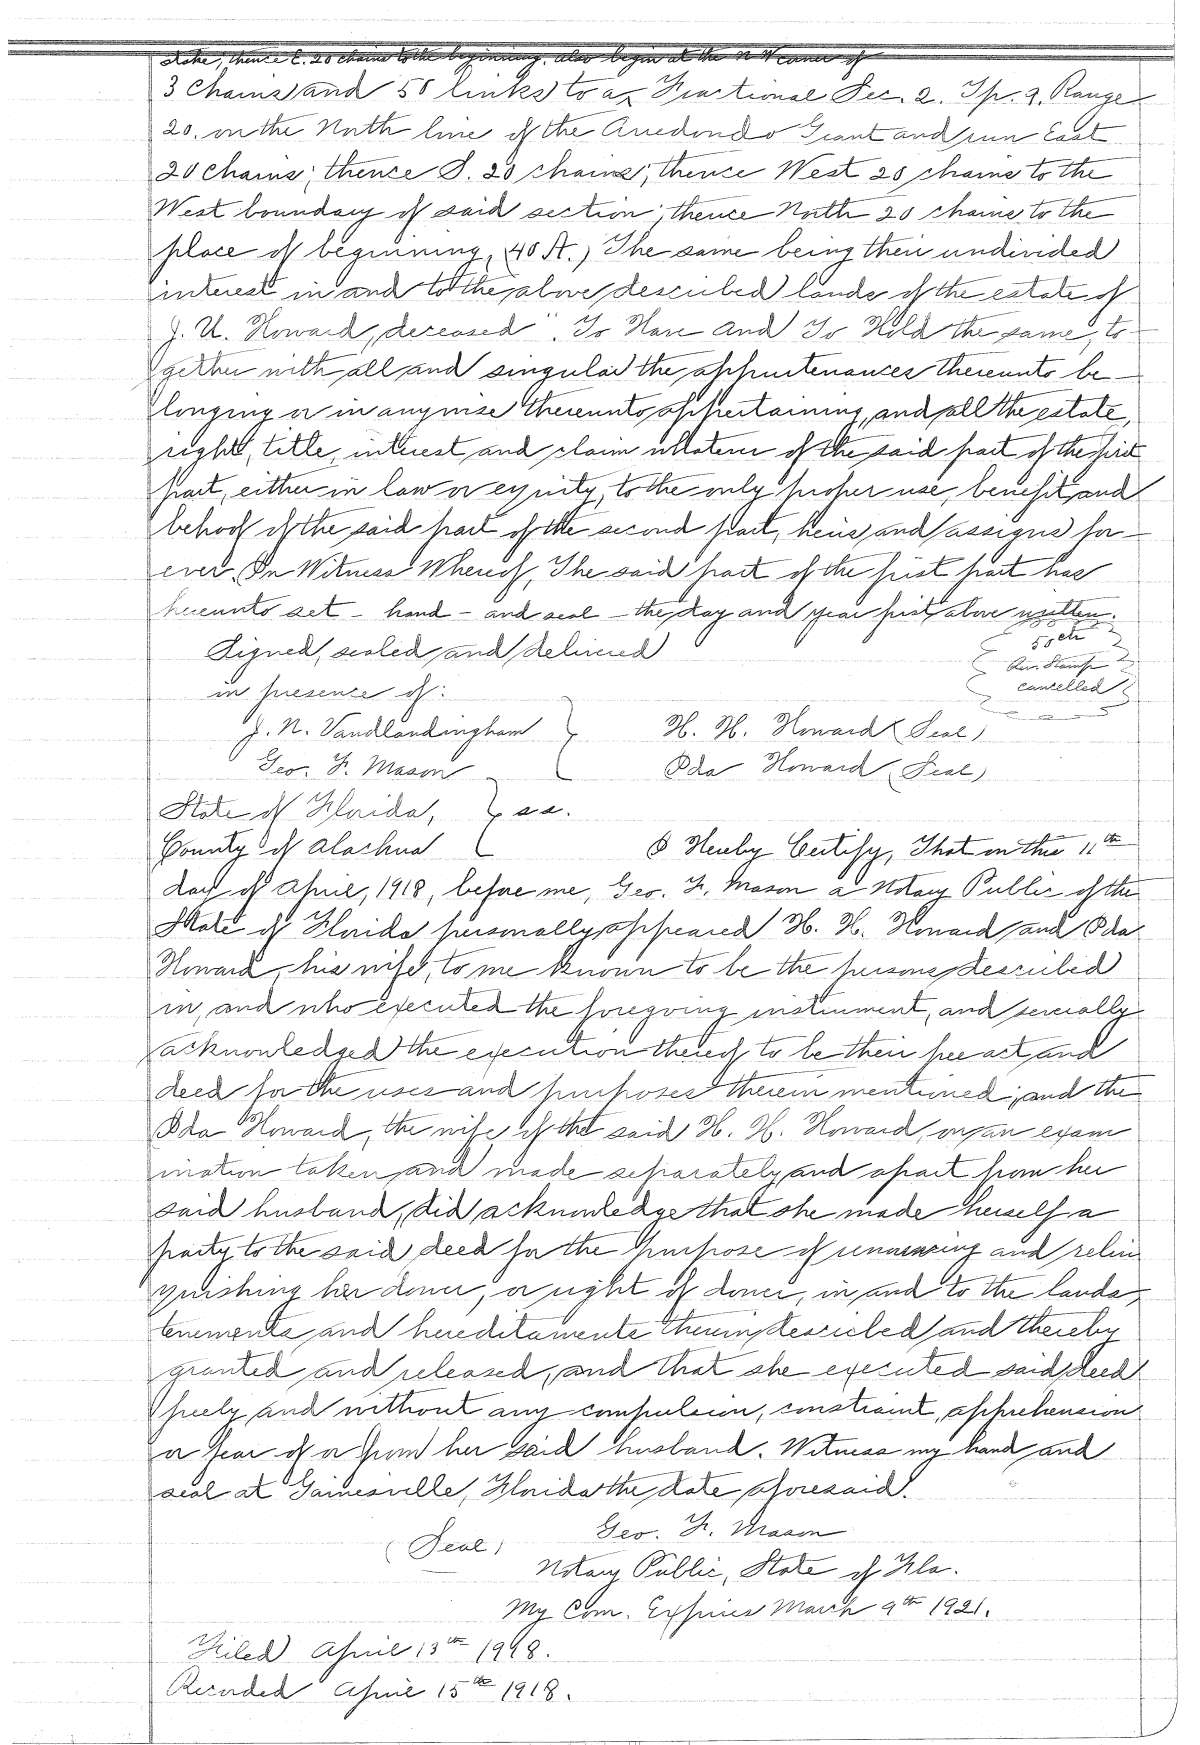 stake; thence E. 20 chains to the beginning, also begin at the N W corner of
3 Chains and 50 links to a Fractional Sec. 2. Tp. 9. Range
20. on the North line of the Arredondo Grant and run East
20 chains; thence S. 20 chains; thence West 20 chains to the
West boundary of said section; thence North 20 chains to the
place of beginning, (40 A.) The same being their undivided
interest in and to the above described lands of the estate of
J. U. Howard, deceased". To Have And To Hold the same, to-
gether with all and singular the appurtenances thereunto be-
longing or in anywise thereunto appertaining, and all the estate,
right, title, interest and claim whatever of the said part of the first
part, either in law or equity, to the only proper use, benefit and
behoof of the said part of the second part, heirs and assigns for-
ever. In Witness Whereof, The said part of the first part has
hereunto set - hand - and seal - the day and year first above written.
Signed, sealed and delivered
50 cts
Rev. Stamp
in presence of:
cancelled
J. N. Vandlandingham H. H. Howard (Seal)
Geo. F. Mason Ida Howard (Seal)
State of Florida, } ss.
County of Alachua I Hereby Certify, That on this 11th
day of April, 1918, before me, Geo. F. Mason a Notary Public of the
State of Florida personally appeared H. H. Howard and Ida
Howard, his wife, to me known to be the persons described
in, and who executed the foregoing instrument, and severally
acknowledged the execution thereof to be their free act and
deed for the uses and purposes therein mentioned; and the
Ida Howard, the wife of the said H. H. Howard, on an exam
ination taken and made separately and apart from her
said husband, did acknowledge that she made herself a
party to the said deed for the purpose of renouncing and relin
quishing her dower, or right of dower, in and to the lands,
tenements and hereditaments therein described and thereby
granted and released, and that she executed said deed
freely and without any compulsion, constraint, apprehension
or fear of or from her said husband. Witness my hand and
seal at Gainesville, Florida the date aforesaid.
(Seal) Geo. F. Mason
Notary Public, State of Fla.
My Com. Expires March 9th 1921.
Filed April 13th 1918.
Recorded April 15th 1918.